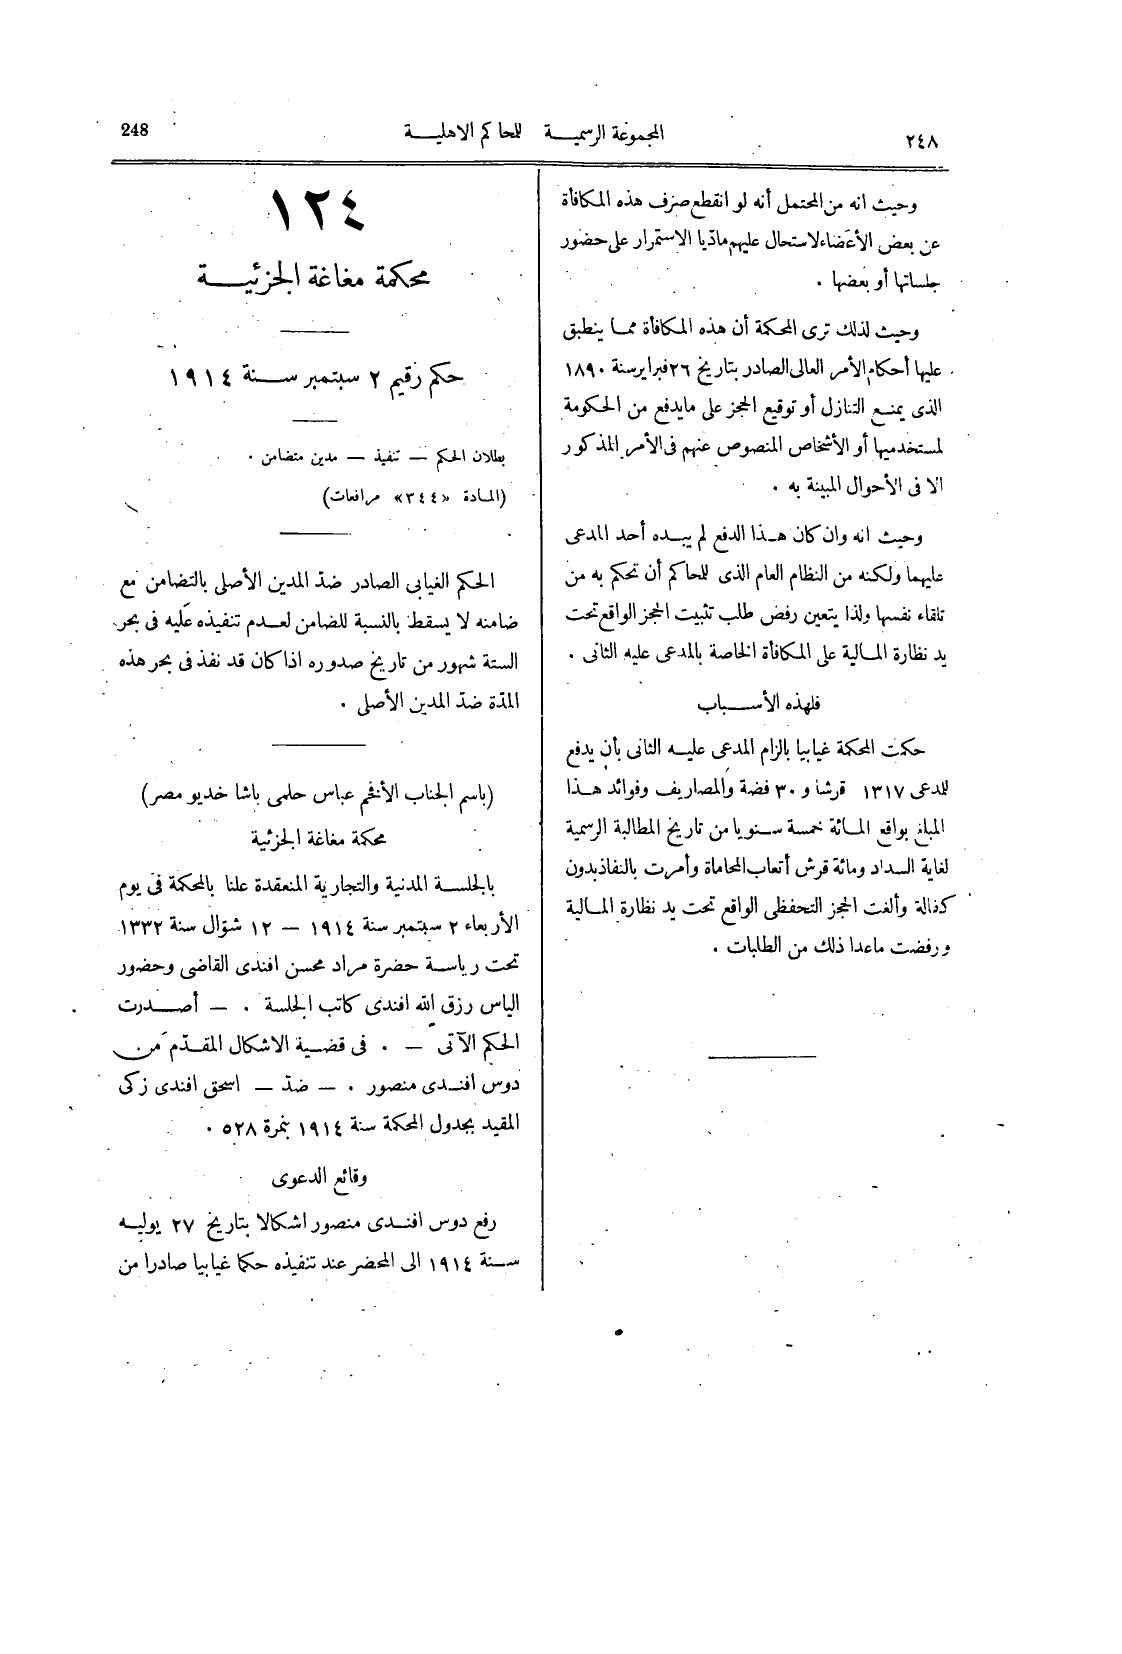 ٢٤٨ المجموعة الرسمية للمحاكم الاهلية 248
وحيث انه من المحتمل أنه لو انقطع صرف هذه المكافأة
عن بعض الأعضاء لاستحال عليهم مادّيا الاستمرار على حضور
جلساتها أو بعضها .
وحيث لذلك ترى المحكمة أن هذه المكافأة مما ينطبق
عليها أحكام الأمر العالى الصادر بتاريخ ٢٦ فبراير سنة ١٨٩٠
الذى يمنع التنازل أو توقيع الحجز على مايدفع من الحكومة
لمستخدميها أو الأشخاص المنصوص عنهم فى الأمر المذكور
الا فى الأحوال المبينة به .
وحيث انه وان كان هذا الدفع لم يبده أحد المدعى
عليهما ولكنه من النظام العام الذى للمحاكم أن تحكم به من
تلقاء نفسها ولذا يتعين رفض طلب تثبيت الحجز الواقع تحت
يد نظارة المالية على المكافأة الخاصة بالمدعى عليه الثانى .
فلهذه الأسباب
حكمت المحكمة غيابيا بالزام المدعى عليه الثانى بأن يدفع
للمدعى ١٣١٧ قرشا و ٣٠ فضة والمصاريف وفوائد هذا
المبلغ بواقع المائة خمسة سنويا من تاريخ المطالبة الرسمية
لغاية السداد ومائة قرش أتعاب المحاماة وأمرت بالنفاذ بدون
كفالة وألغت الحجز التحفظى الواقع تحت يد نظارة المالية
ورفضت ماعدا ذلك من الطلبات .
١٢٤
محكمة مغاغة الجزئية
حكم رقيم ٢ سبتمبر سنة ١٩١٤
بطلان الحكم — تنفيذ — مدين متضامن .
(المادة «٣٤٤» مرافعات)
الحكم الغيابى الصادر ضدّ المدين الأصلى بالتضامن مع
ضامنه لا يسقط بالنسبة للضامن لعدم تنفيذه عليه فى بحر
الستة شهور من تاريخ صدوره اذا كان قد نفذ فى بحر هذه
المدّة ضدّ المدين الأصلى .
(باسم الجناب الأفخم عباس حلمى باشا خديو مصر)
محكمة مغاغة الجزئية
بالجلسة المدنية والتجارية المنعقدة علنا بالمحكمة فى يوم
الأربعاء ٢ سبتمبر سنة ١٩١٤ — ١٢ شوّال سنة ١٣٣٢
تحت رياسة حضرة مراد محسن افندى القاضى وحضور
الياس رزق الله افندى كاتب الجلسة . — أصدرت
الحكم الآتى — . فى قضية الاشكال المقدّم من
دوس افندى منصور . — ضدّ — اسحق افندى زكى
المقيد بجدول المحكمة سنة ١٩١٤ بنمرة ٥٢٨ .
وقائع الدعوى
رفع دوس افندى منصور اشكالا بتاريخ ٢٧ يوليه
سنة ١٩١٤ الى المحضر عند تنفيذه حكما غيابيا صادرا من